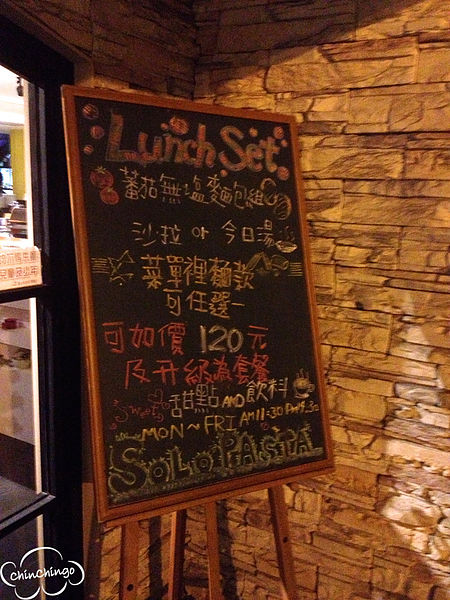 Lunch Set
蕃茄無塩麵包組
沙拉 or 今日湯
菜單裡麵款
可任選一
可加價 120 元
及升級為套餐
Sweet 甜點 AND 飲料
MON ~ FRI AM11:30 PM
SOLO PASTA
chinchingo